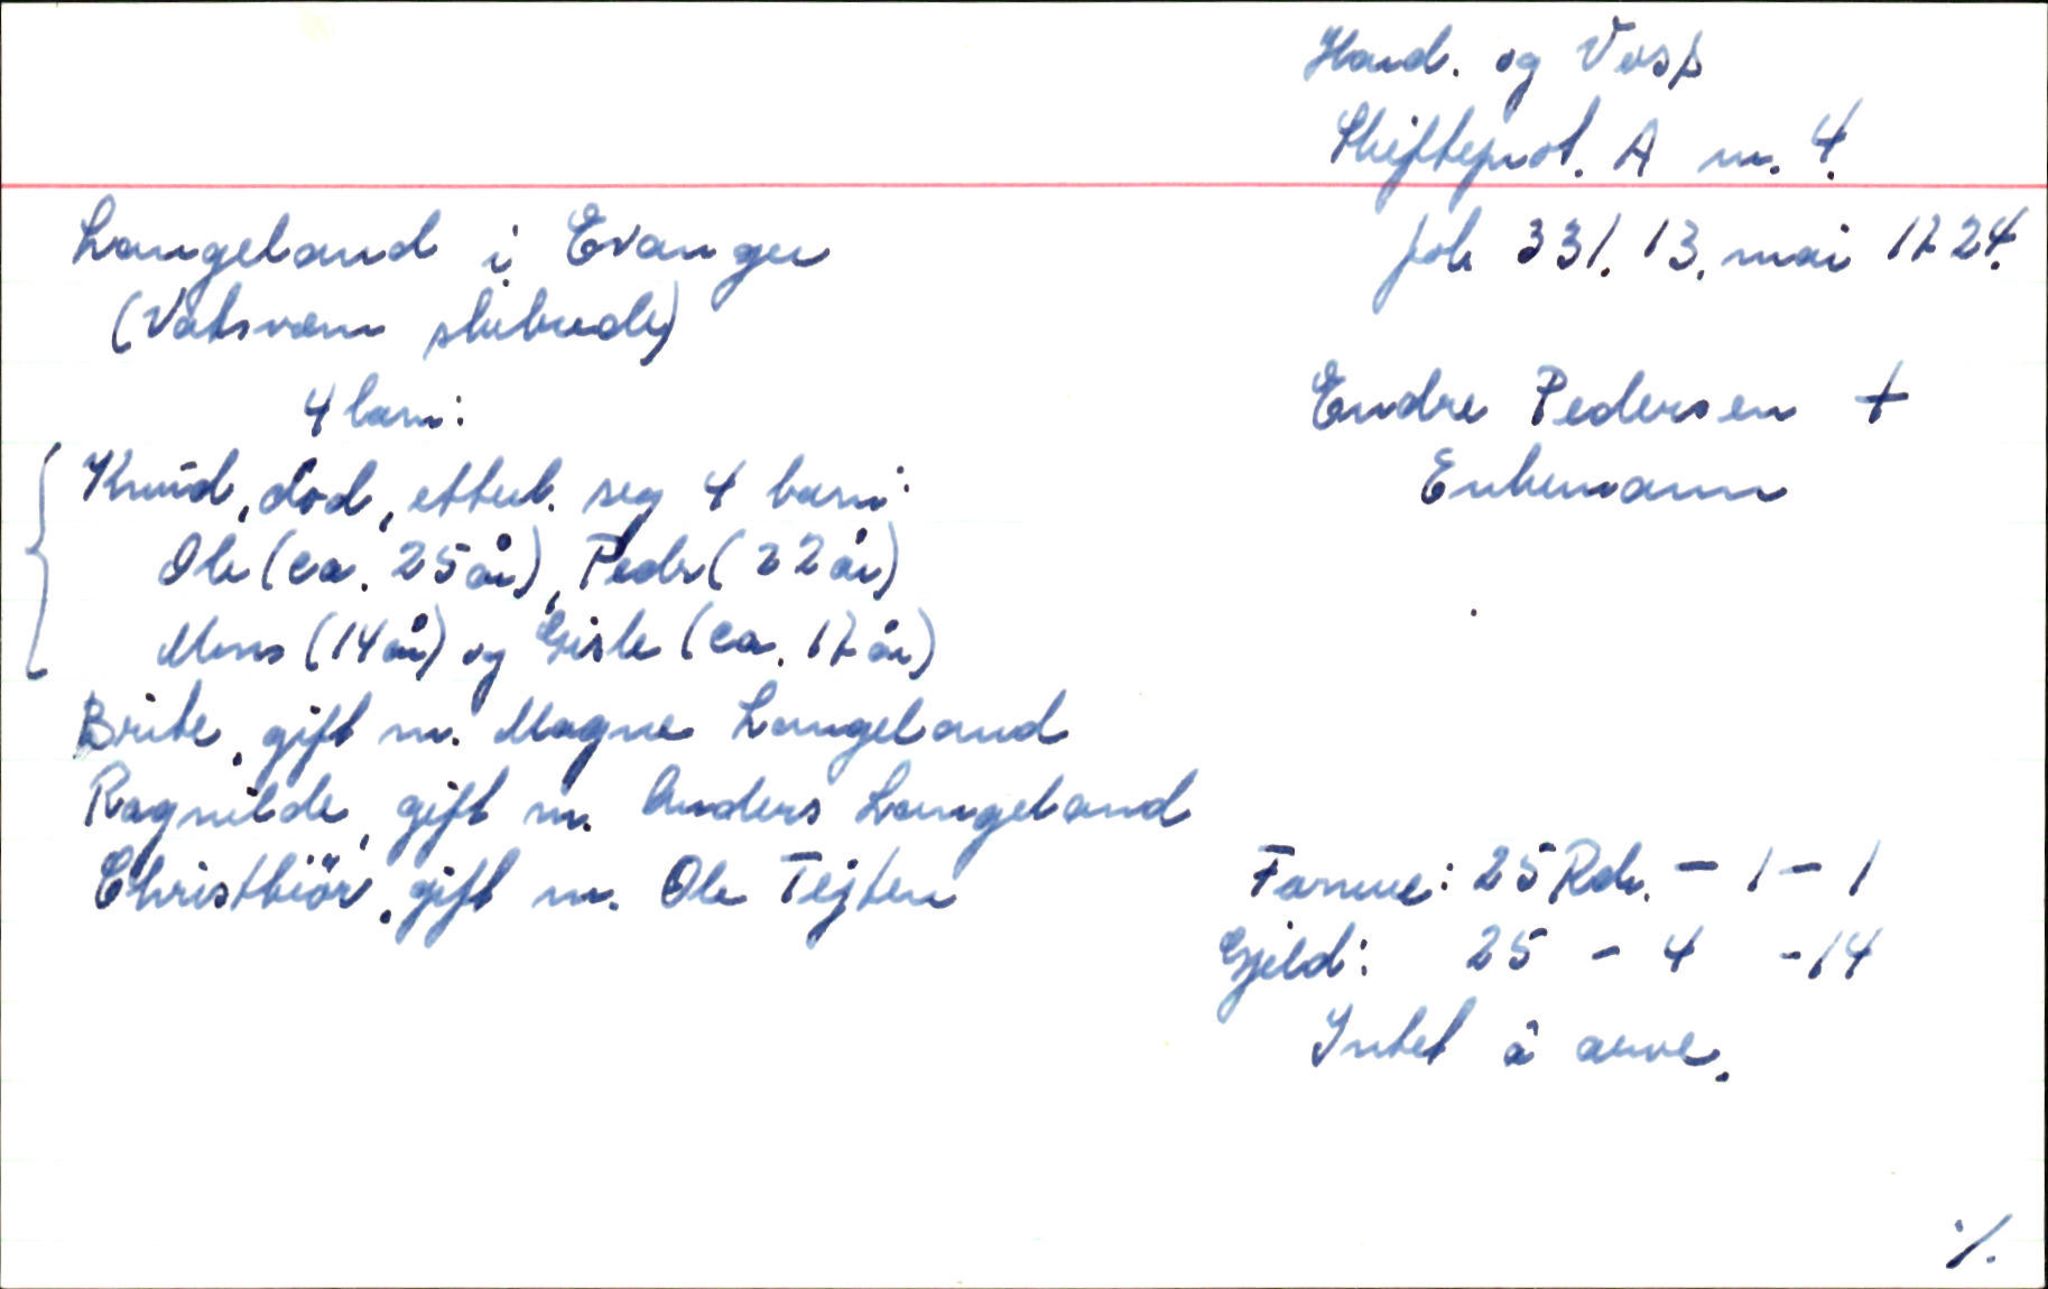 Hard. og Voss
Skifteprot. A nr. 4.
fol. 331. 13. mai 1724.
Langeland i Evanger
(Vaksvær skibrede)
Endre Pedersen +
Enkemann
4 barn:
Knud, død, etterl. seg 4 barn:
Ole (ca. 25 år), Peder (22 år)
Mons (14 år) og Gisle (ca. 17 år)
Brite, gift m. Magne Langeland
Ragnilde, gift m. Anders Langeland
Christbiör, gift m. Ole Tejten
Formue: 25 Rdr. - 1 - 1
Gjeld: 25 - 4 - 14
Intet å arve.
./.